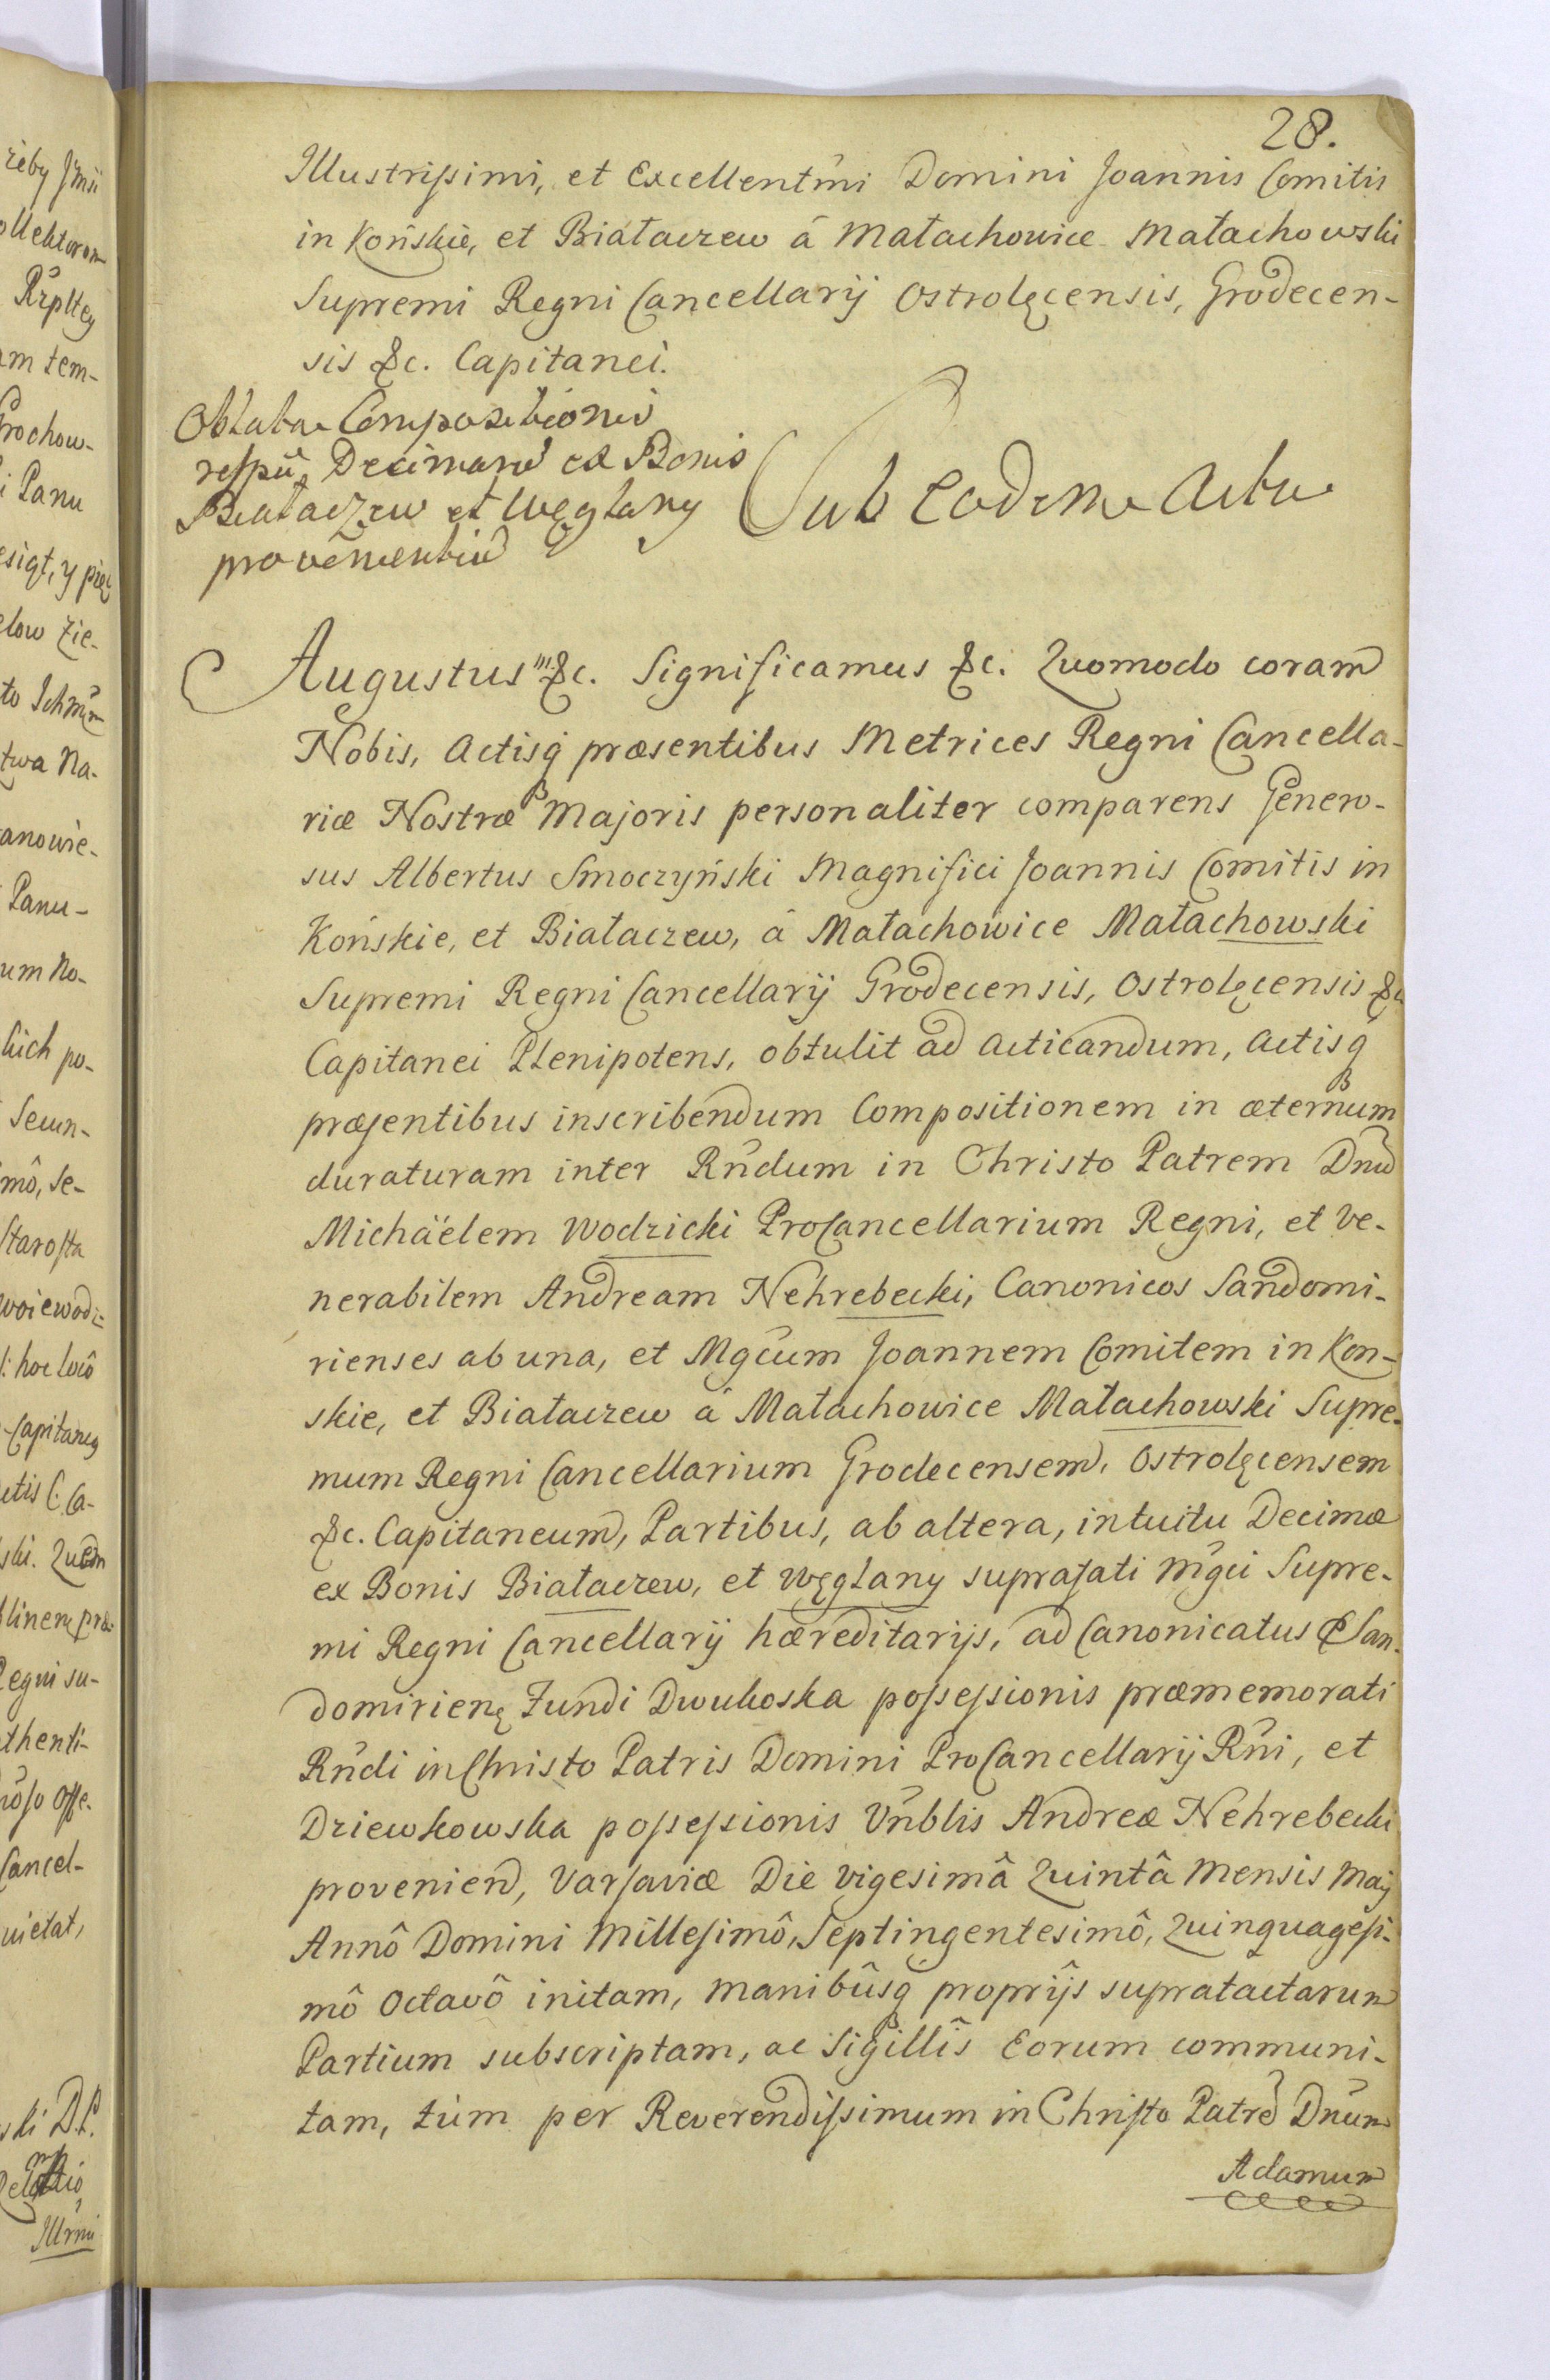 28.
Illustrissimi, et Excellentm̃i Domini Joannis Comitis
in Końskie, et Białaczew á Małachowice Małachowski
Supremi Regni Cancellarij Ostrolęcensis, Grodecen-
sis &c. Capitanei.
Oblatae Compositionis
respũ Decimarũ ex Bonis
Białaczew et Węglany
proveñientiũ
Sub eodem Actu
Augustus III. &c. Significamus &c. Quomodo coram
Nobis, Actisq̃ præsentibus Metrices Regni Cancella-
riæ Nostræ Majoris personaliter comparens Genero-
sus Albertus Smoczyński Magnifici Joannis Comitis in
Końskie, et Białaczew, á Małachowice Małachowski
Supremi Regni Cancellarij Grodecensis, Ostrolęcensis &c
Capitanei Plenipotens, obtulit ad Acticandum, Actisq̃
præsentibus inscribendum Compositionem in æternum
duraturam inter Rñdum in Christo Patrem Dnũ
Michäélem Wodzicki ProCancellarium Regni, et Ve-
nerabilem Andream Nehrebecki, Canonicos Sandomi-
rienses ab una, et Mgc̃um Joannem Comitem in Kon-
skie, et Białaczew á Małachowice Małachowski Supre-
mum Regni Cancellarium Grodecensem, Ostrolęcensem
&c. Capitaneum, Partibus, ab altera, intuitu Decimæ
ex Bonis Białaczew, et Węglany suprafati Mg̃ci Supre-
mi Regni Cancellarij hæreditarijs, ad Canonicatus San-
domirienȩ Fundi Dwukoska possessionis præmemorati
Rñdi in Christo Patris Domini ProCancellarij Rñi, et
Dziewkowska possessionis Vñblis Andreæ Nehrebecki
provenien̄, Varsaviæ Die vigesimâ Quintâ Mensis Maij
Annô Domini Millesimô, Septingentesimô, Quinquagesi-
mô Octavô initam, manibûsq̃ proprijs supratactarum
Partium subscriptam, ac Sigillîs Eorum communi-
tam, túm per Reverendissimum in Christo Patrẽ Dñum
Adamum